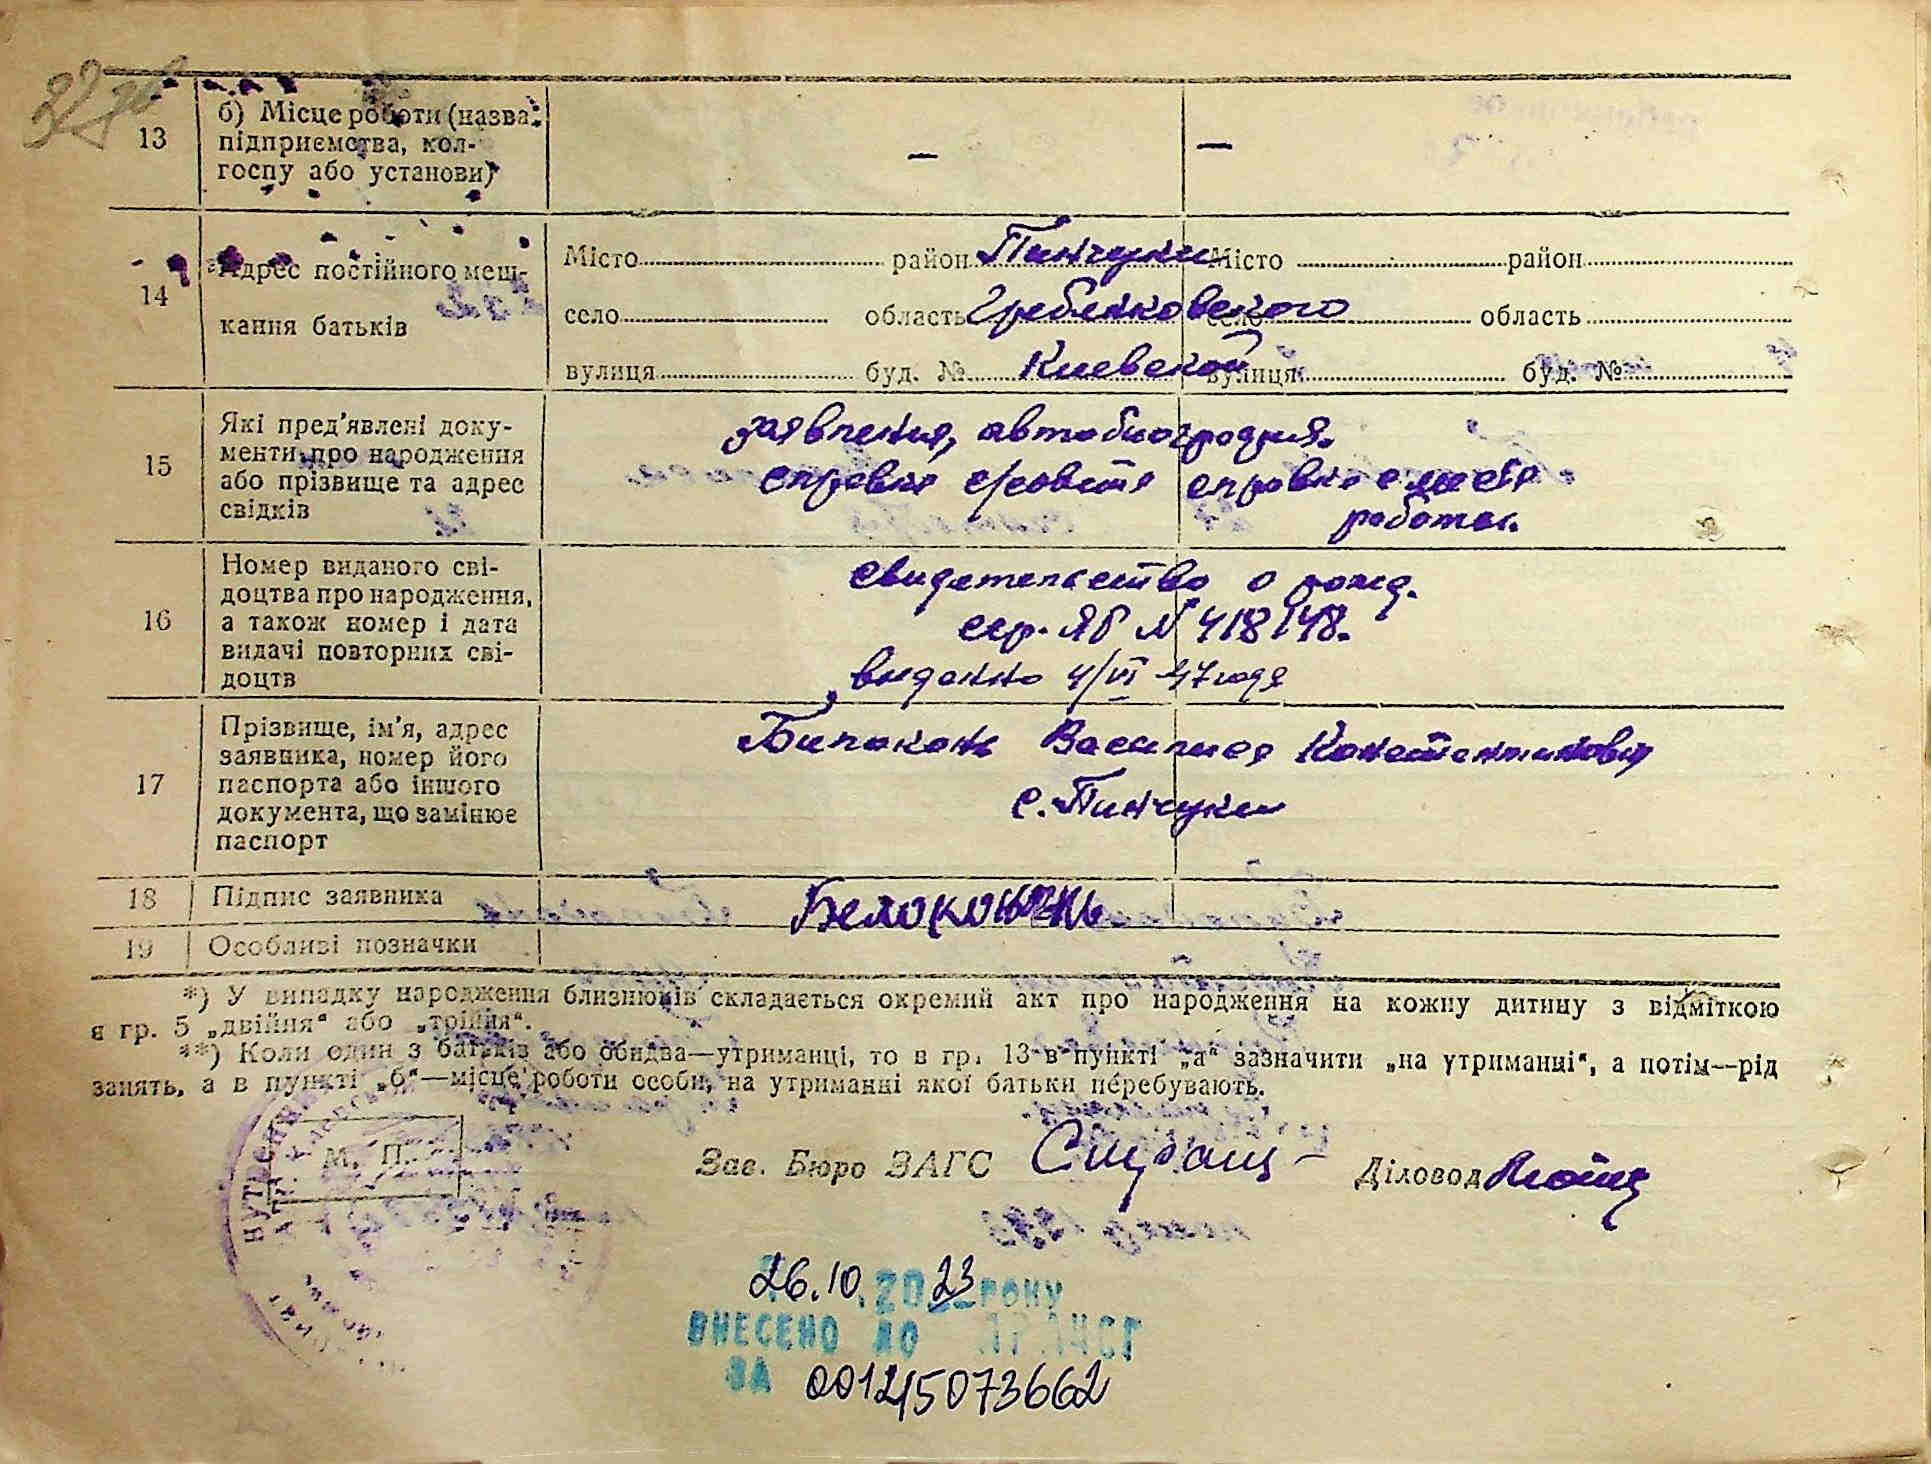 13 б) Місце роботи (назва підприємства, колгоспу або установи) — —
14 Адрес постійного мешкання батьків
Місто район Пинчуки Місто район
село область Гребенковского село область
вулиця буд. № Киевской вулиця буд. №
15 Які пред'явлені документи про народження або прізвище та адрес свідків
заявления, автобиография.
справка с/совета справка с места
работы.
16 Номер виданого свідоцтва про народження, а також номер і дата видачі повторних свідоцтв
свидетельство о рожд.
сер. ЯБ № 418148.
виданно 4/VI 47 года
17 Прізвище, ім'я, адрес заявника, номер його паспорта або іншого документа, що замінює паспорт
Билоконь Василися Константинович
с. Пинчуки
18 Підпис заявника Белоконь
19 Особливі позначки
*) У випадку народження близнюків складається окремий акт про народження на кожну дитину з відміткою
в гр. 5 „двійня“ або „трійня“.
**) Коли один з батьків або обидва—утриманці, то в гр. 13 в пункті „а“ зазначити „на утриманні“, а потім—рід
занять, а в пункті „б“—місце роботи особи, на утриманні якої батьки перебувають.
М. П.
Зав. Бюро ЗАГС Діловод
26.10.2023 року
ВНЕСЕНО ДО ДРАЦСГ
ЗА 00145073662